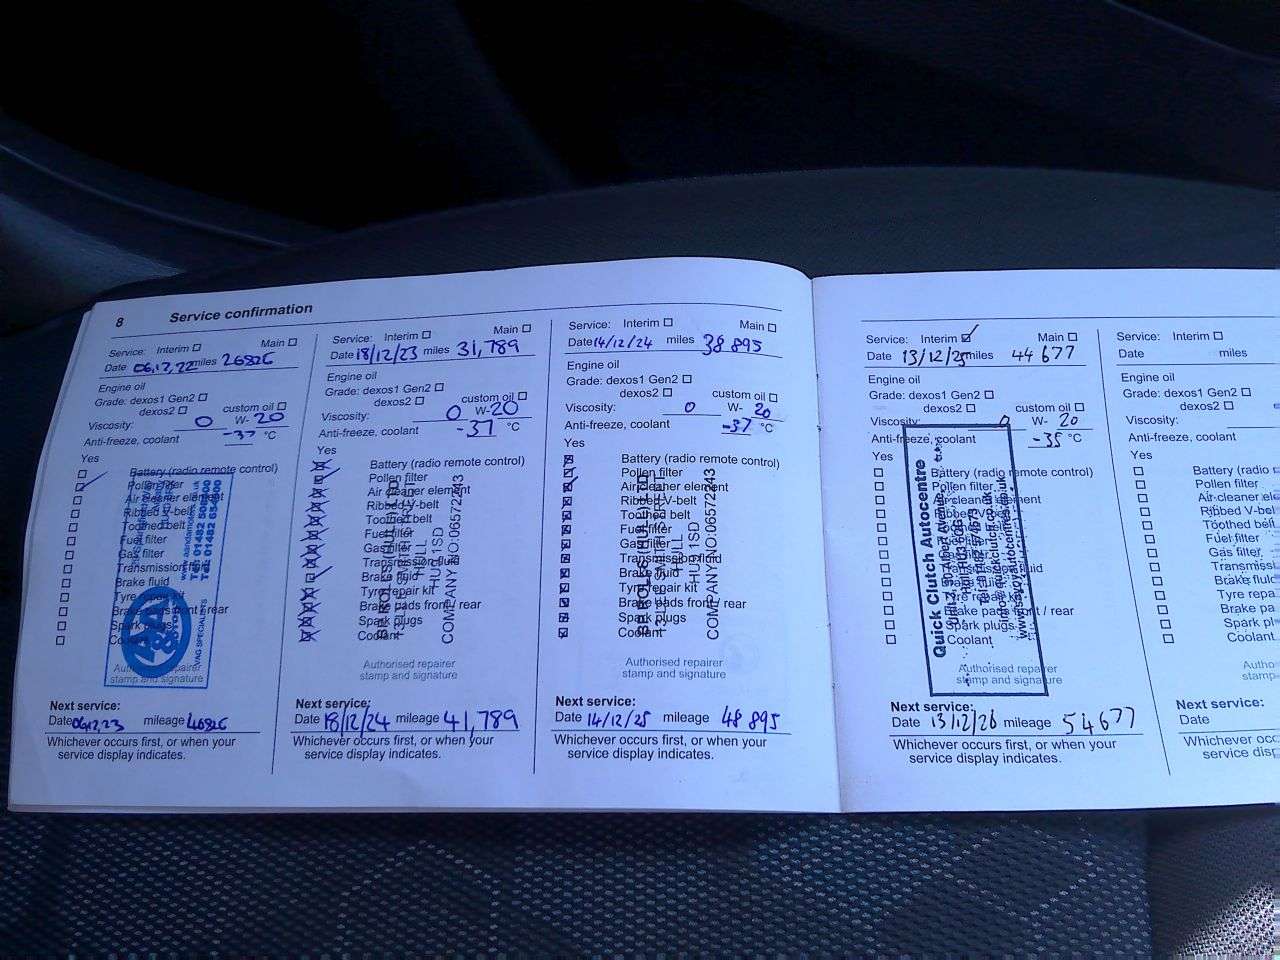 8 Service confirmation
Service: Interim Main
Date 06,12,22 miles 26826
Engine oil
Grade: dexos1 Gen2
dexos2 custom oil
Viscosity: 0 W- 20
Anti-freeze, coolant -37 °C
Yes
Battery (radio remote control)
Pollen filter
Air cleaner element
Ribbed V-belt
Toothed belt
Fuel filter
Gas filter
Transmission fluid
Brake fluid
Tyre repair kit
Brake pads front / rear
Spark plugs
Coolant
VAG SPECIALISTS
Authorised repairer
stamp and signature
Next service:
Date 06,12,23 mileage
Whichever occurs first, or when your
service display indicates.
Service: Interim Main
Date 18/12/23 miles 31,789
Engine oil
Grade: dexos1 Gen2
dexos2 custom oil
Viscosity: 0 W- 20
Anti-freeze, coolant -37 °C
Yes
Battery (radio remote control)
Pollen filter
Air cleaner element
Ribbed V-belt
Toothed belt
Fuel filter
Gas filter
Transmission fluid
Brake fluid
Tyre repair kit
Brake pads front / rear
Spark plugs
Coolant
HULL
HU9 1SD
COMPANY NO:06572243
Authorised repairer
stamp and signature
Next service:
Date 18/12/24 mileage 41,789
Whichever occurs first, or when your
service display indicates.
Service: Interim Main
Date 14/12/24 miles 38 895
Engine oil
Grade: dexos1 Gen2
dexos2 custom oil
Viscosity: 0 W- 20
Anti-freeze, coolant -37 °C
Yes
Battery (radio remote control)
Pollen filter
Air cleaner element
Ribbed V-belt
Toothed belt
Fuel filter
Gas filter
Transmission fluid
Brake fluid
Tyre repair kit
Brake pads front / rear
Spark plugs
Coolant
HULL
HU9 1SD
COMPANY NO:06572243
Authorised repairer
stamp and signature
Next service:
Date 14/12/25 mileage 48 895
Whichever occurs first, or when your
service display indicates.
Service: Interim Main
Date 13/12/25 miles 44 677
Engine oil
Grade: dexos1 Gen2
dexos2 custom oil
Viscosity: 0 W- 20
Anti-freeze, coolant -35 °C
Yes
Battery (radio remote control)
Pollen filter
Air cleaner element
Ribbed V-belt
Toothed belt
Fuel filter
Gas filter
Transmission fluid
Brake fluid
Tyre repair kit
Brake pads front / rear
Spark plugs
Coolant
Quick Clutch Autocentre
Authorised repairer
stamp and signature
Next service:
Date 13/12/26 mileage 54677
Whichever occurs first, or when your
service display indicates.
Service: Interim
Date miles
Engine oil
Grade: dexos1 Gen2
dexos2
Viscosity:
Anti-freeze, coolant
Yes
Battery (radio
Pollen filter
Air cleaner
Ribbed V-bel
Toothed bel
Fuel filter
Gas filter
Transmiss
Brake
Tyre repa
Brake pa
Spark
Coolant
Next service:
Date
Whichever
service